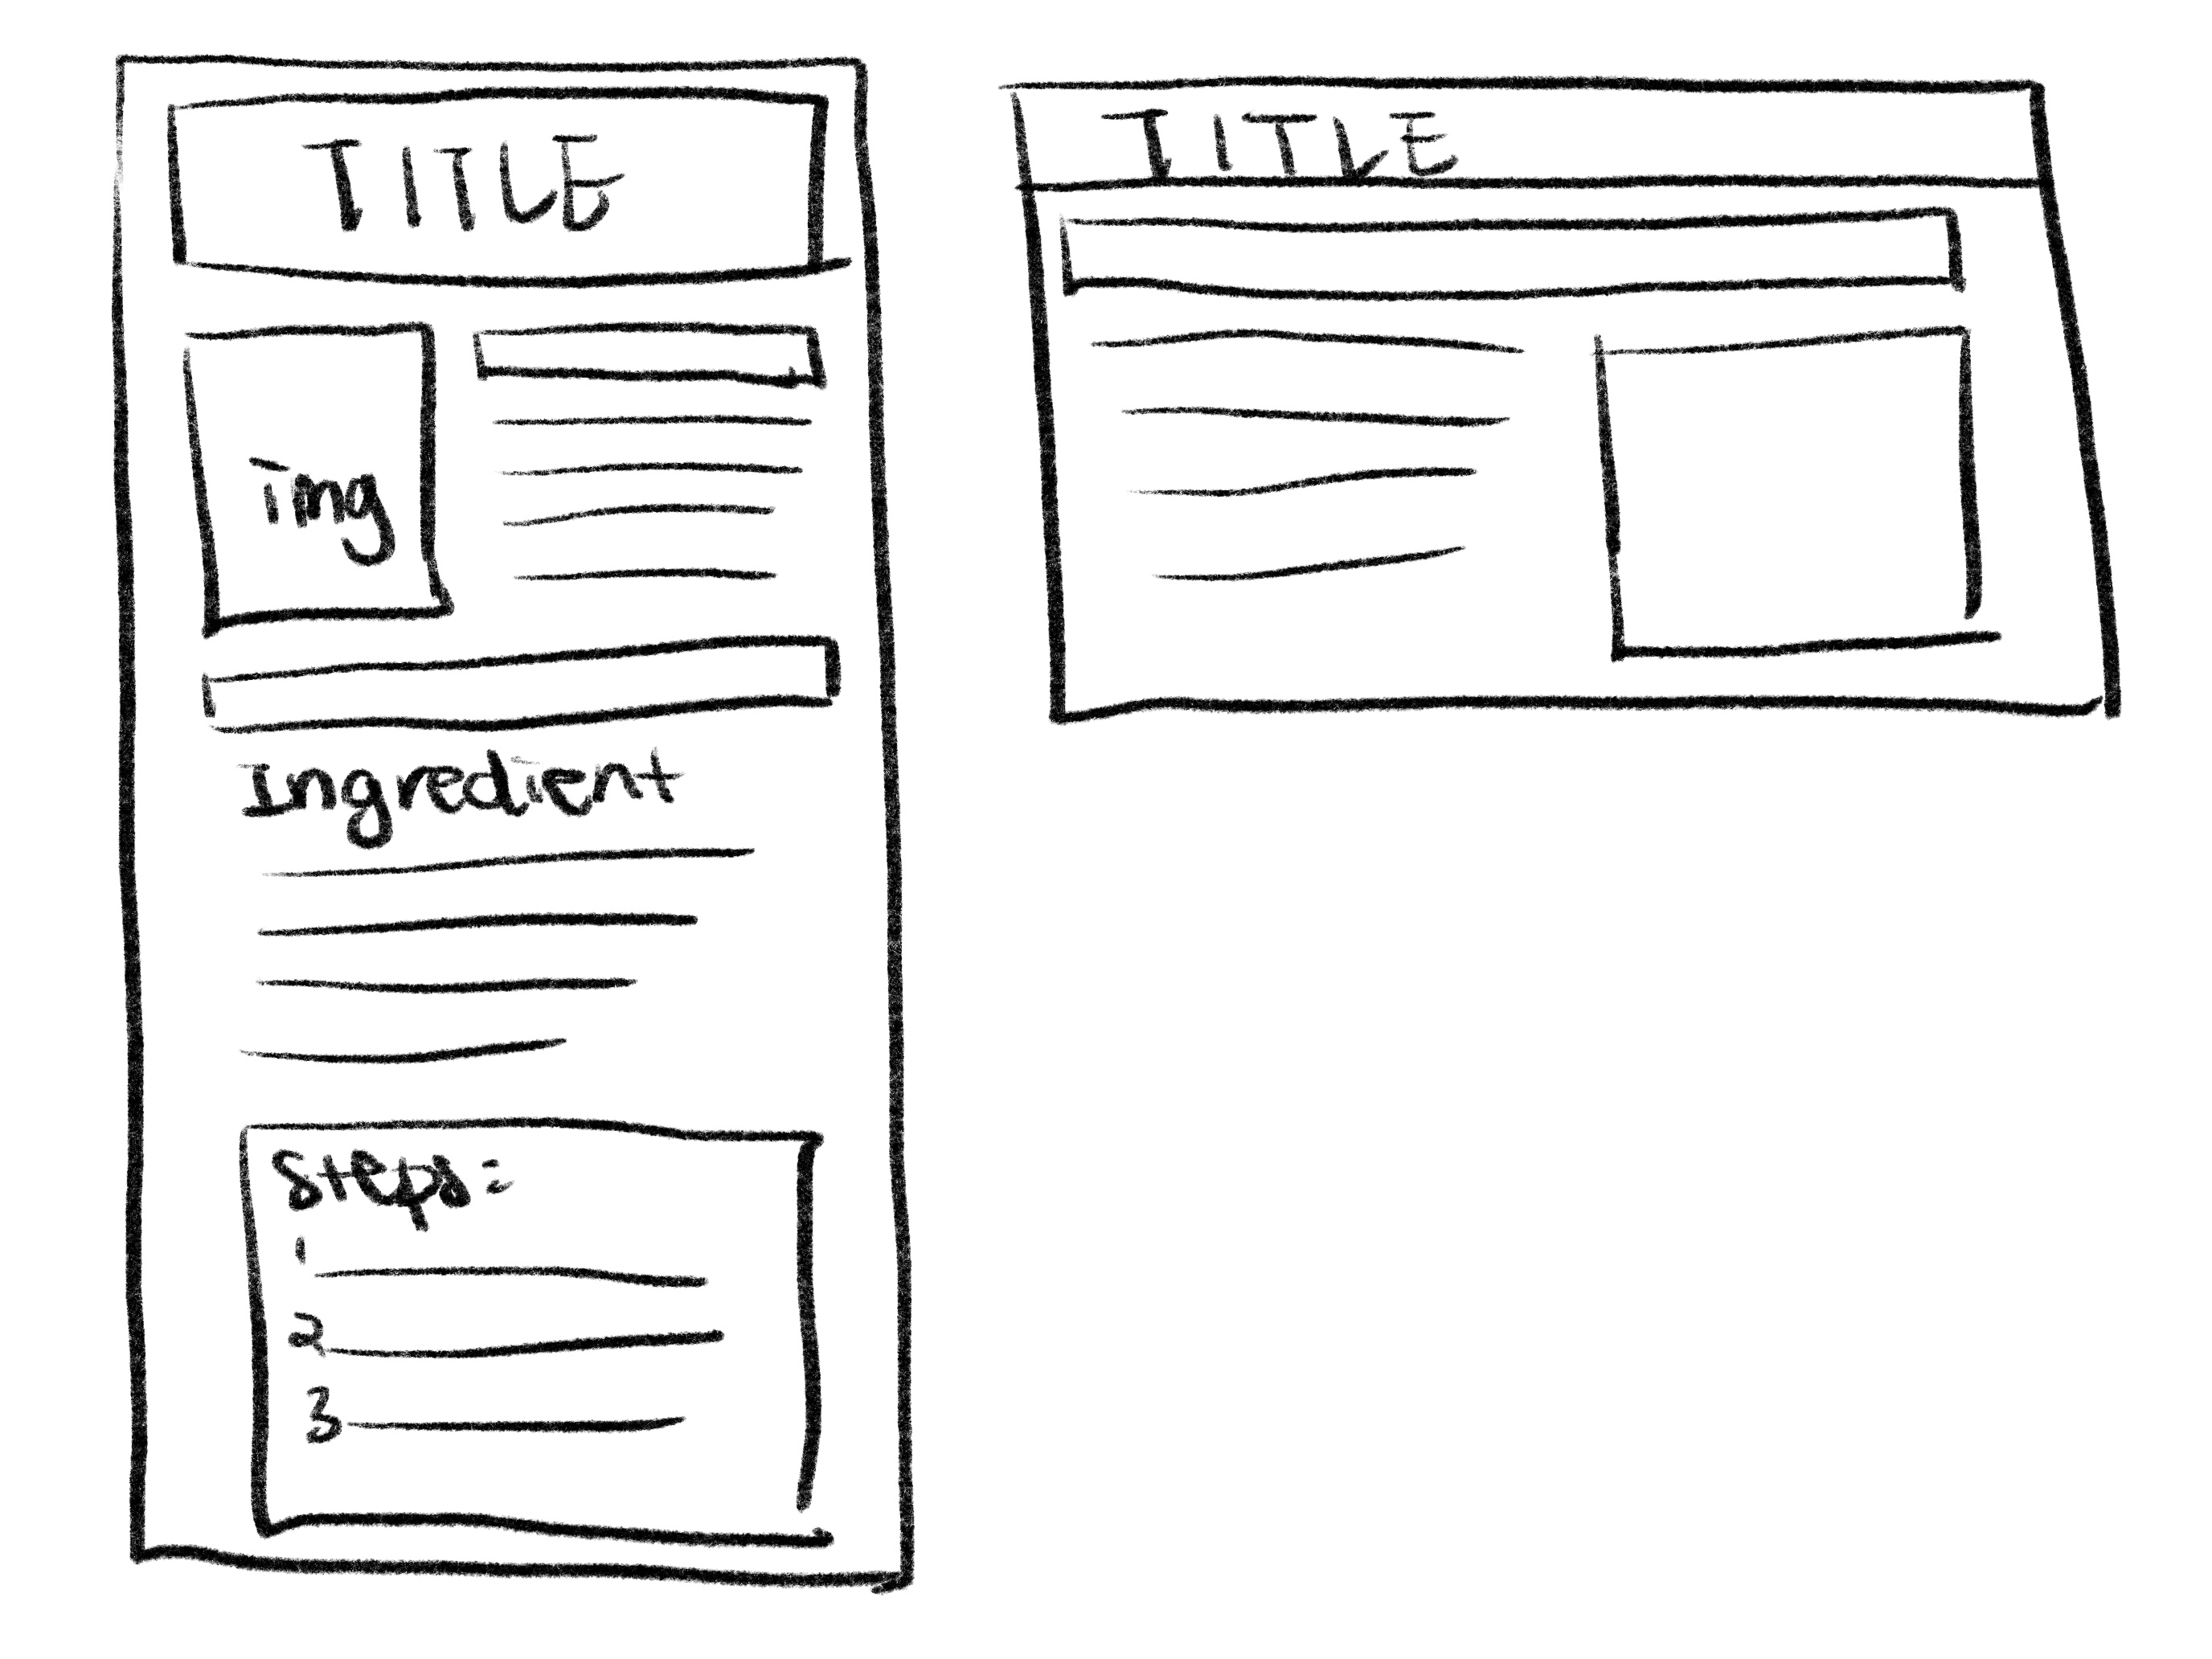 TITLE
img
Ingredient
Steps:
1
2
3
TITLE